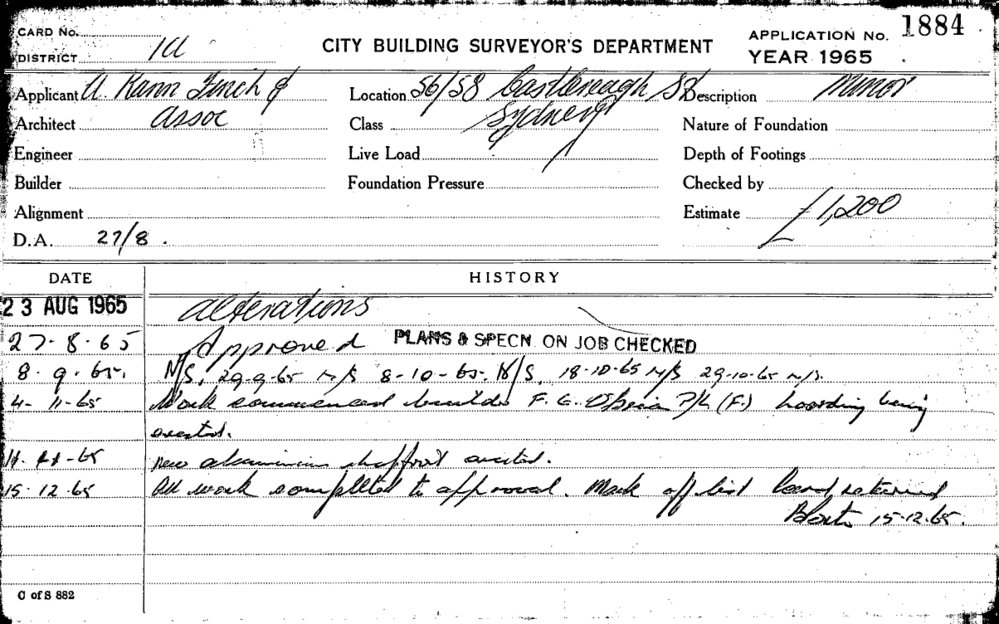 CARD No.
DISTRICT 1a
CITY BUILDING SURVEYOR'S DEPARTMENT
APPLICATION No. 1884
YEAR 1965
Applicant A. Kann Finch &
Architect Assoc
Engineer
Builder
Alignment
D.A. 27/8.
Location 56/58 Castlereagh St
Class Sydney
Live Load
Foundation Pressure
Description Minor
Nature of Foundation
Depth of Footings
Checked by
Estimate £1,200
DATE HISTORY
23 AUG 1965 Alterations
27-8-65 Approved PLANS & SPECN. ON JOB CHECKED
8.9.65. N/S. 29-9-65 N/S 8-10-65. N/S. 18-10-65 N/S 29-10-65 N/S.
4-11-65 Work commenced builder F. G. O'Brien P/L (F.) hoarding being
erected.
11-11-65 New aluminium shopfront erected.
15-12-65 All work completed to approval. Mark off list card returned
15-12-65.
C of S 882